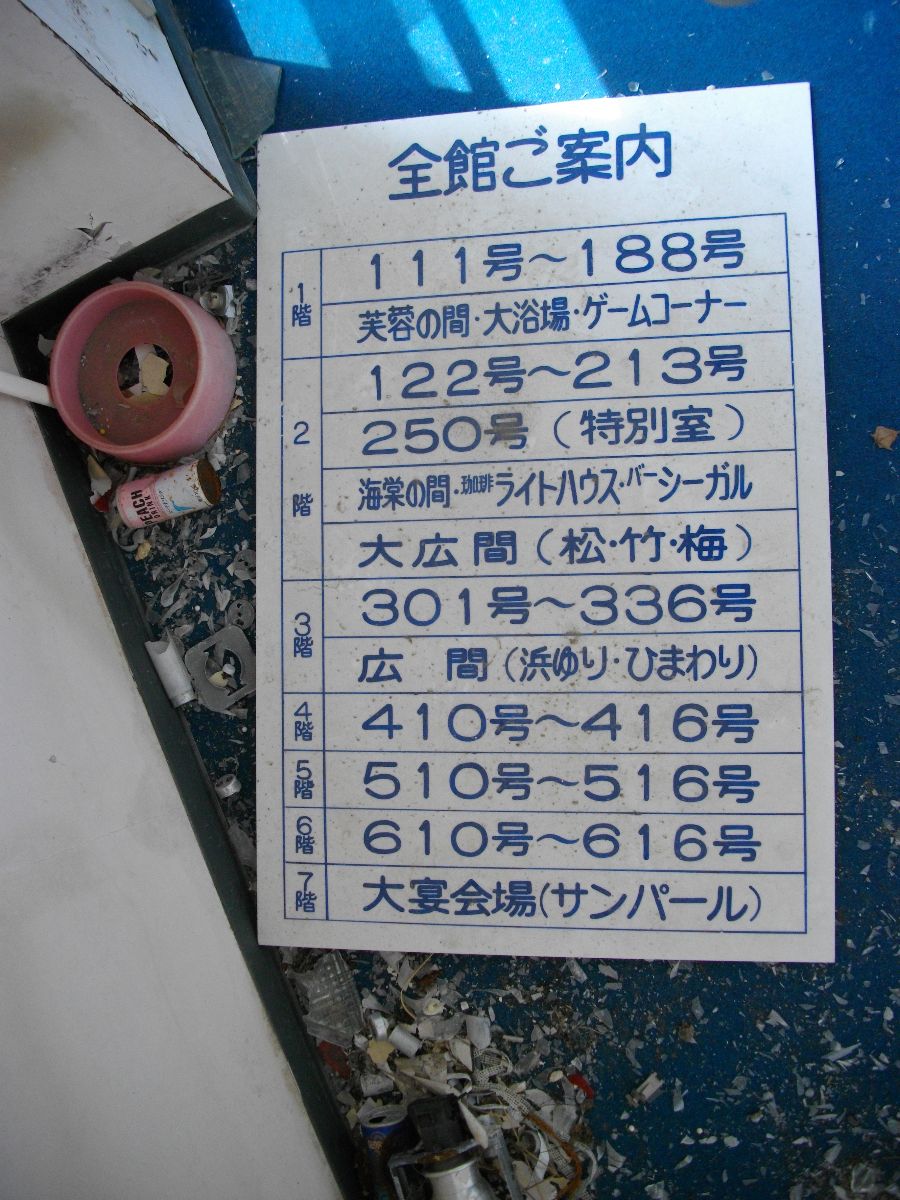 全館ご案内
1階 111号～188号
芙蓉の間・大浴場・ゲームコーナー
2階 122号～213号
250号(特別室)
海棠の間・珈琲ライトハウス・バーシーガル
大広間(松・竹・梅)
3階 301号～336号
広間(浜ゆり・ひまわり)
4階 410号～416号
5階 510号～516号
6階 610号～616号
7階 大宴会場(サンパール)
PEACH
DRINK